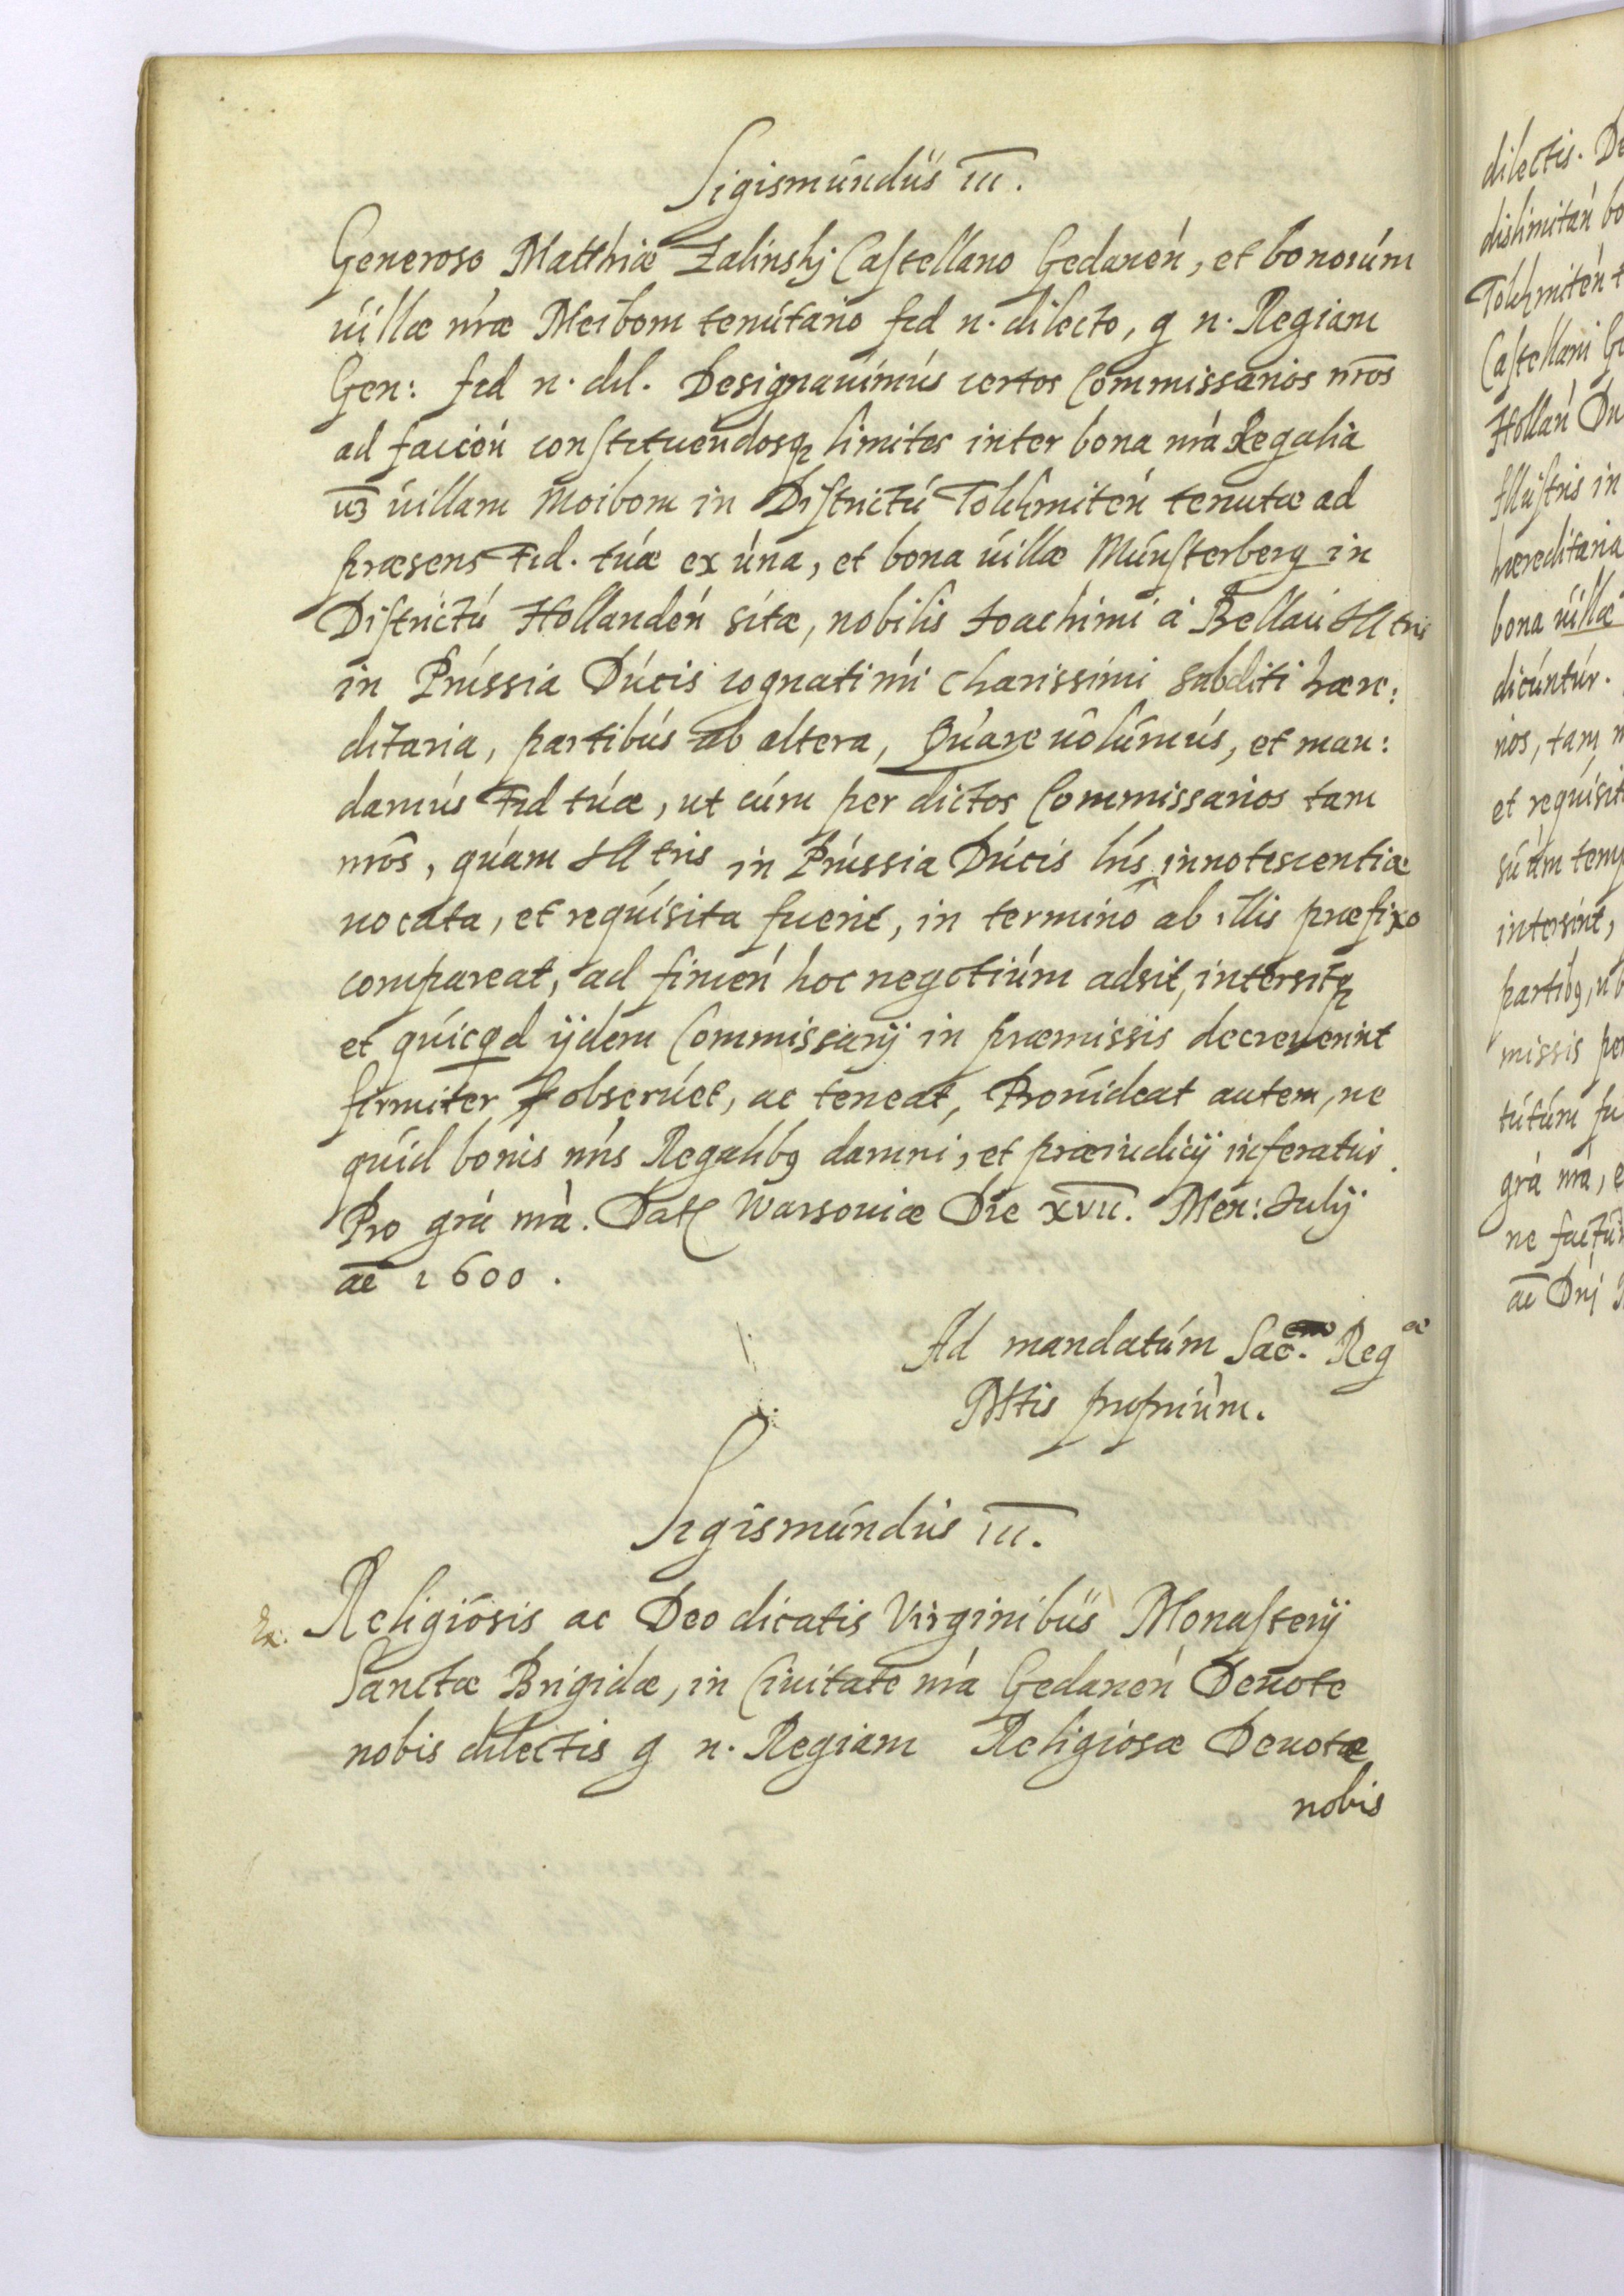 Sigismundus III.
Generoso Matthiæ Zalinskj Castellano Gedanen, et bonorum
villæ nræ Meibom tenutario fid n. dilecto, g n. Regiam
Gen: fid n. dil. Designauimus certos Commissarios nros
ad facien constituendosq limites inter bona nra Regalia
uz uillam Moibom in Districtu Tolkhmiten tenutæ ad
præsens Fid. tuæ ex una, et bona uillæ Munsterberg in
Districtu Hollanden sitæ, nobilis Joachimi à Bellau Illtris
in Prussia Ducis cognati nri charissimi subditi hære:
ditaria, partibus ab altera, Quare uolumus, et man:
damus Fid tuæ, ut cum per dictos Commissarios tam
nros, quam Illtris in Prussia Ducis lris innotescentiæ
uocata, et requisita fuerit, in termino ab illis præfixo
compareat, ad finien hoc negotium adsit, intersitq
et quicqd ijdem Commissarij in præmissis decreuerint
firmiter obseruet, ac teneat, Prouideat autem, ne
quid bonis nris Regalibg damni, et præiudicij inferatur.
Pro gra nra. Dat Warsouiæ Die XVII. Men: Julij
ao 1600.
Ad mandatum Sac. Regæ
Mttis proprium.
Sigismundus III.
Religiosis ac Deo dicatis Virginibus Monasterij
Sanctæ Brigidæ, in Ciuitate nra Gedanen Deuote
nobis dilectis g n. Regiam Religiosæ Deuotæ
nobis
dilectis. De
dislimitan bo
Tolkhmiten t
Castellani Ge
Hollan Du
Illustris in
hæreditaria
bona uillæ
dicuntur.
nos, tam n
et requisit
suam temp
intersint,
partibg, ub
missis per
tutum fu
gra nra, e
ne factur
ao Dnj